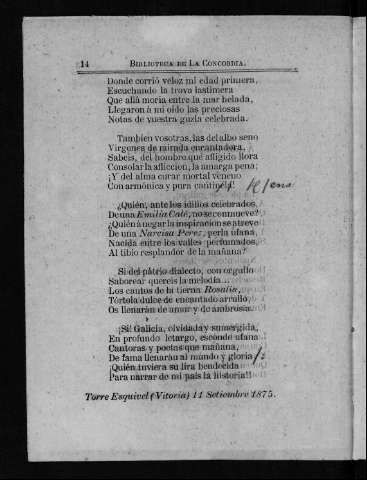 14 BIBLIOTECA DE LA CONCORDIA.
Donde corrió veloz mi edad primera,
Escuchando la trova lastimera
Que allá moria entre la mar helada,
Llegaron á mi oido las preciosas
Notas de vuestra guzla celebrada.
Tambien vosotras, las del albo seno
Vírgenes de mirada encantadora,
Sabeis, del hombre que afligido llora
Consolar la afliccion, la amarga pena;
¡Y del alma curar mortal veneno
Con armónica y pura cantinel!
¿Quién, ante los idilios celebrados
De una Emilia Calé, no se conmueve?
¿Quién á negar la inspiracion se atreve
De una Narcisa Perez, perla ufana,
Nacida entre los valles perfumados,
Al tibio resplandor de la mañana?
Si del pátrio dialecto, con orgullo
Saborear quereis la melodía...
Los cantos de la tierna Rosalía,
Tórtola dulce de encantado arrullo,
Os llenarán de amor y de ambrosía.
¡Sí! Galicia, olvidada y sumergida,
En profundo letargo, esconde ufana
Cantoras y poetas que mañana,
De fama llenarán al mundo y gloria
¡Quién tuviera su lira bendecida
Para narrar de mi país la historia!!
Torre Esquivel (Vitoria) 11 Setiembre 1875.